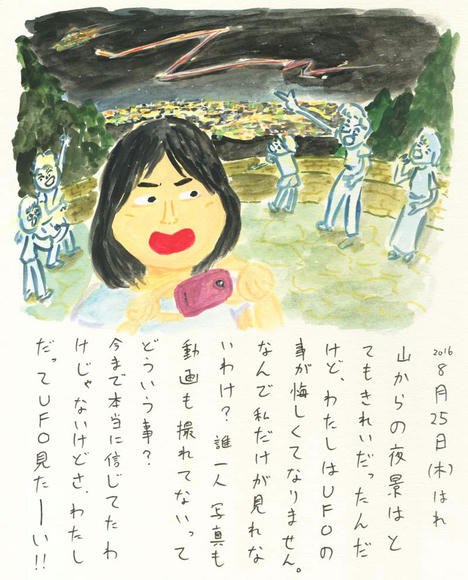 2016
8月25日(木)はれ
山からの夜景はと
てもきれいだったんだ
けど、わたしはUFOの
事が悔しくてなりません。
なんで私だけが見れな
いわけ？誰一人写真も
動画も撮れてないって
どういう事？
今まで本当に信じてたわ
けじゃないけどさ、わたし
だってUFO見たーい!!